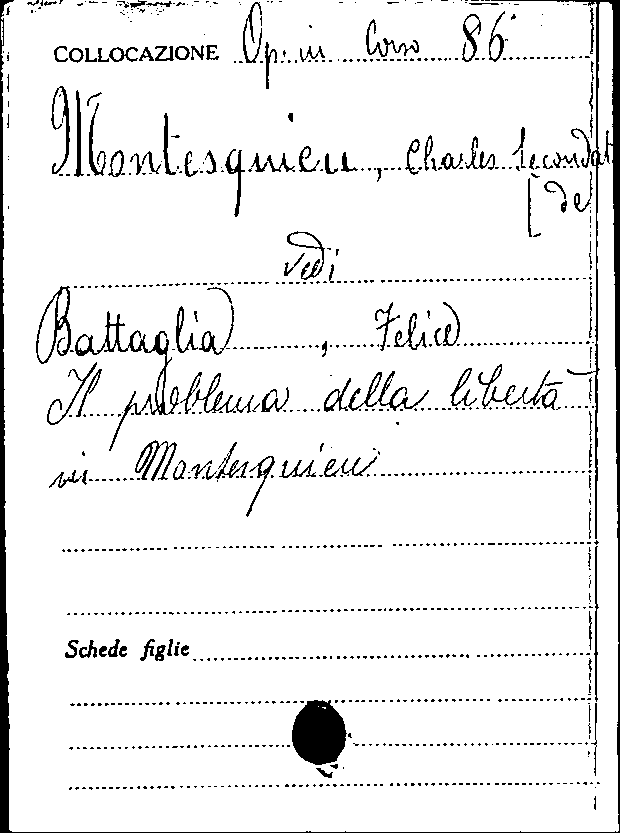 COLLOCAZIONE Op. in Corso 86
Montesquieu, Charles Secondat
[de
vedi
Battaglia, Felice
Il problema della libertà
in Montesquieu
Schede figlie